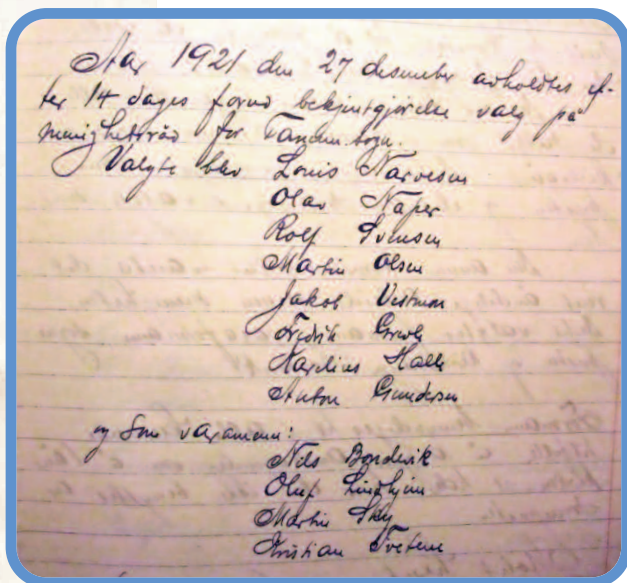 Aar 1921 den 27 desember avholdtes ef-
ter 14 dages forud bekjentgjörelse valg på
menighetsråd for Tanum sogn.
Valgte blev Louis Narvesen
Olav Naper
Rolf Svensen
Martin Olsen
Jakob Vestmon
Fredrik
Karelius Halle
Anton Gundersen
og som varamenn:
Nils Bondevik
Oluf Lindhjem
Martin Sky
Kristian Tvetene